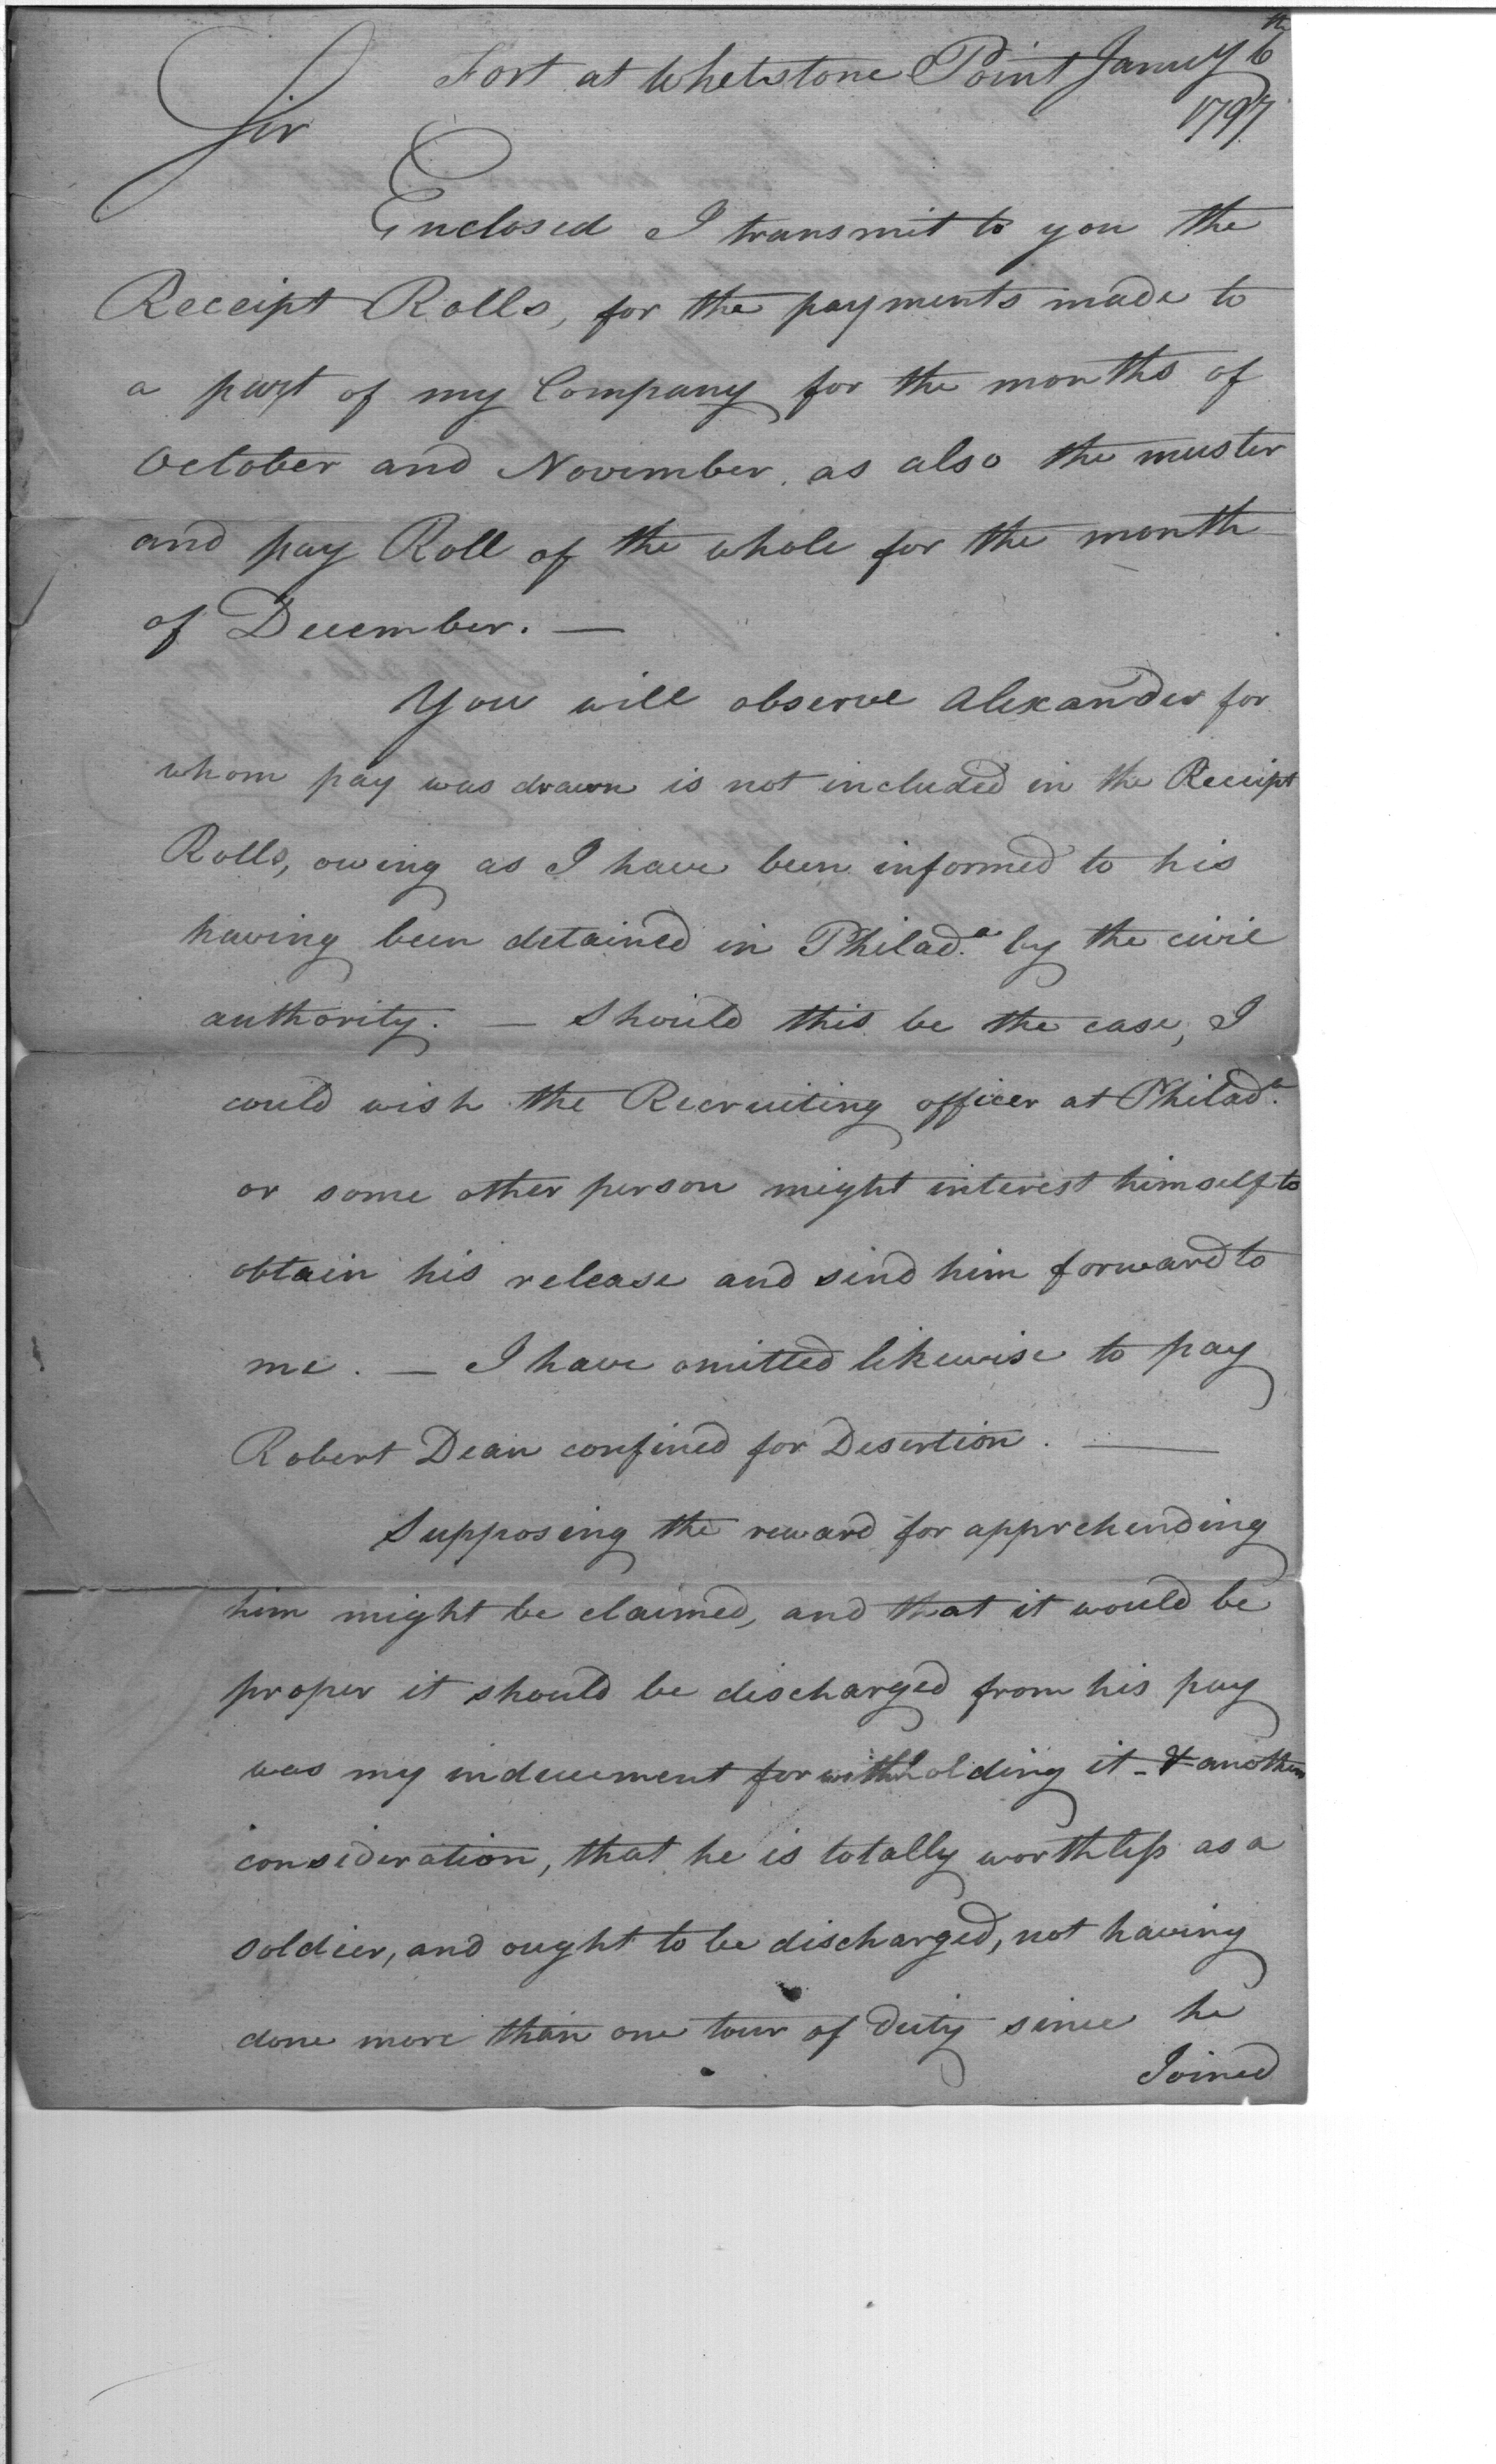 Fort at Whetstone Point Januy 6th
1797
Sir
Enclosed I transmit to you the
Receipt Rolls, for the payments made to
a part of my Company for the months of
October and November, as also the muster
and pay Roll of the whole for the month
of December. —
You will observe Alexander for
whom pay was drawn is not included in the Receipt
Rolls, owing as I have been informed to his
having been detained in Philada. by the civil
authority. — Should this be the case, I
could wish the Recruiting officer at Philada.
or some other person might interest himself to
obtain his release and send him forward to
me. — I have omitted likewise to pay
Robert Dean confined for Desertion. —
Supposing the reward for apprehending
him might be claimed, and that it would be
proper it should be discharged from his pay
was my inducement for withholding it - & another
consideration, that he is totally worthless as a
soldier, and ought to be discharged, not having
done more than one tour of duty since he
Joined